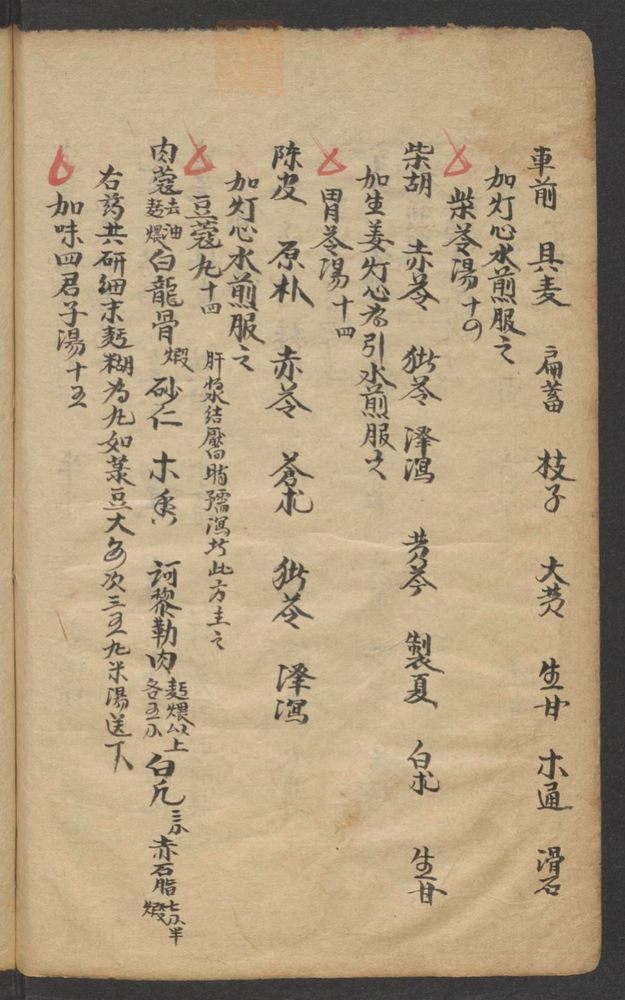 車前 具麦 扁蓄 枝子 大黄 生甘 木通 滑石
加灯心水煎服之
柴苓湯十四
柴胡 赤苓 猪苓 澤瀉 黄芩 製夏 白朮 生甘
加生姜灯心為引水煎服之
胃苓湯十四
陈皮 原朴 赤苓 蒼朮 猪苓 澤瀉
加灯心水煎服之
豆蔻丸十四 肝 結 此方主之
肉蔻去油麪煨 白龍骨煅 砂仁 木香 訶黎勒肉麪煨以上各五分 白凡三分 赤石脂七分半煅
右葯共研細末麪糊為丸如菉豆大每次三五丸米湯送下
加味四君子湯十五